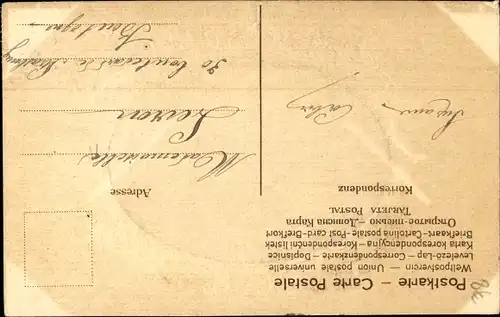 Postkarte – Carte Postale
Weltpostverein — Union postale universelle
Levelező-Lap – Correspondenzkarte – Dopisnice
Karta korespondencyjna – Korespondenční lístek
Briefkaart–Cartolina postale–Post-card–Brefkort
Открытое письмо – Дописна Карта
TARJETA POSTAL
Korrespondenz
Adresse
Mademoiselle
30 boulevard
Suzanne